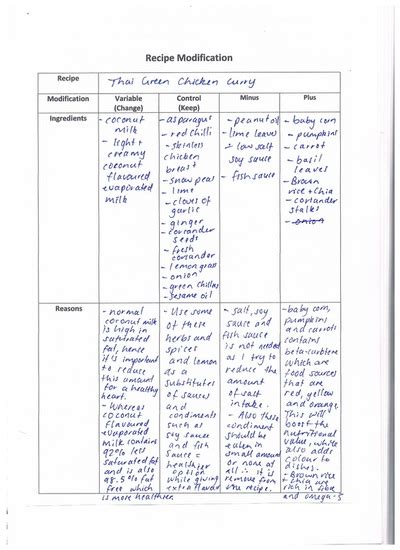 Recipe Modification
Recipe
Thai Green Chicken Curry
Modification
Variable
(Change)
Control
(Keep)
Minus
Plus
Ingredients
- coconut
milk
- light +
creamy
coconut
flavoured
evaporated
milk
- asparagus
- red chilli
- skinless
chicken
breast
- snow peas
- lime
- cloves of
garlic
- ginger
- coriander
seeds
- fresh
coriander
- lemongrass
- onion
- green chillies
- sesame oil
- peanut oil
- lime leaves
- low salt
soy sauce
- fish sauce
- baby corn
- pumpkins
- carrot
- basil
leaves
- Brown
rice + chia
- coriander
stalks
- onion
Reasons
- normal
coconut milk
is high in
saturated
fat, hence
it is important
to reduce
this amount
for a healthy
heart.
- Whereas
coconut
flavoured
evaporated
milk contains
92% less
saturated fat
and is also
98.5% fat
free which
is more healthier.
- Use some
of these
herbs and
spices
and lemon
as a
substitutes
of sauces
and
condiments
such as
soy sauce
and fish
sauce =
healthier
option
while giving
extra flavour
- salt, soy
sauce and
fish sauce
is not needed
as I try to
reduce the
amount
of salt
intake.
- Also these
condiment
should be
eaten in
small amount
or none at
all ∴ it is
remove from
the recipe.
- baby corn,
pumpkins
and carrots
contains
beta-carotene
which are
food sources
that are
red, yellow
and orange.
This will
boost the
nutritional
value, while
also adds
colour to
dishes.
- Brown rice
+ chia are
rich in fibre
and omega-3